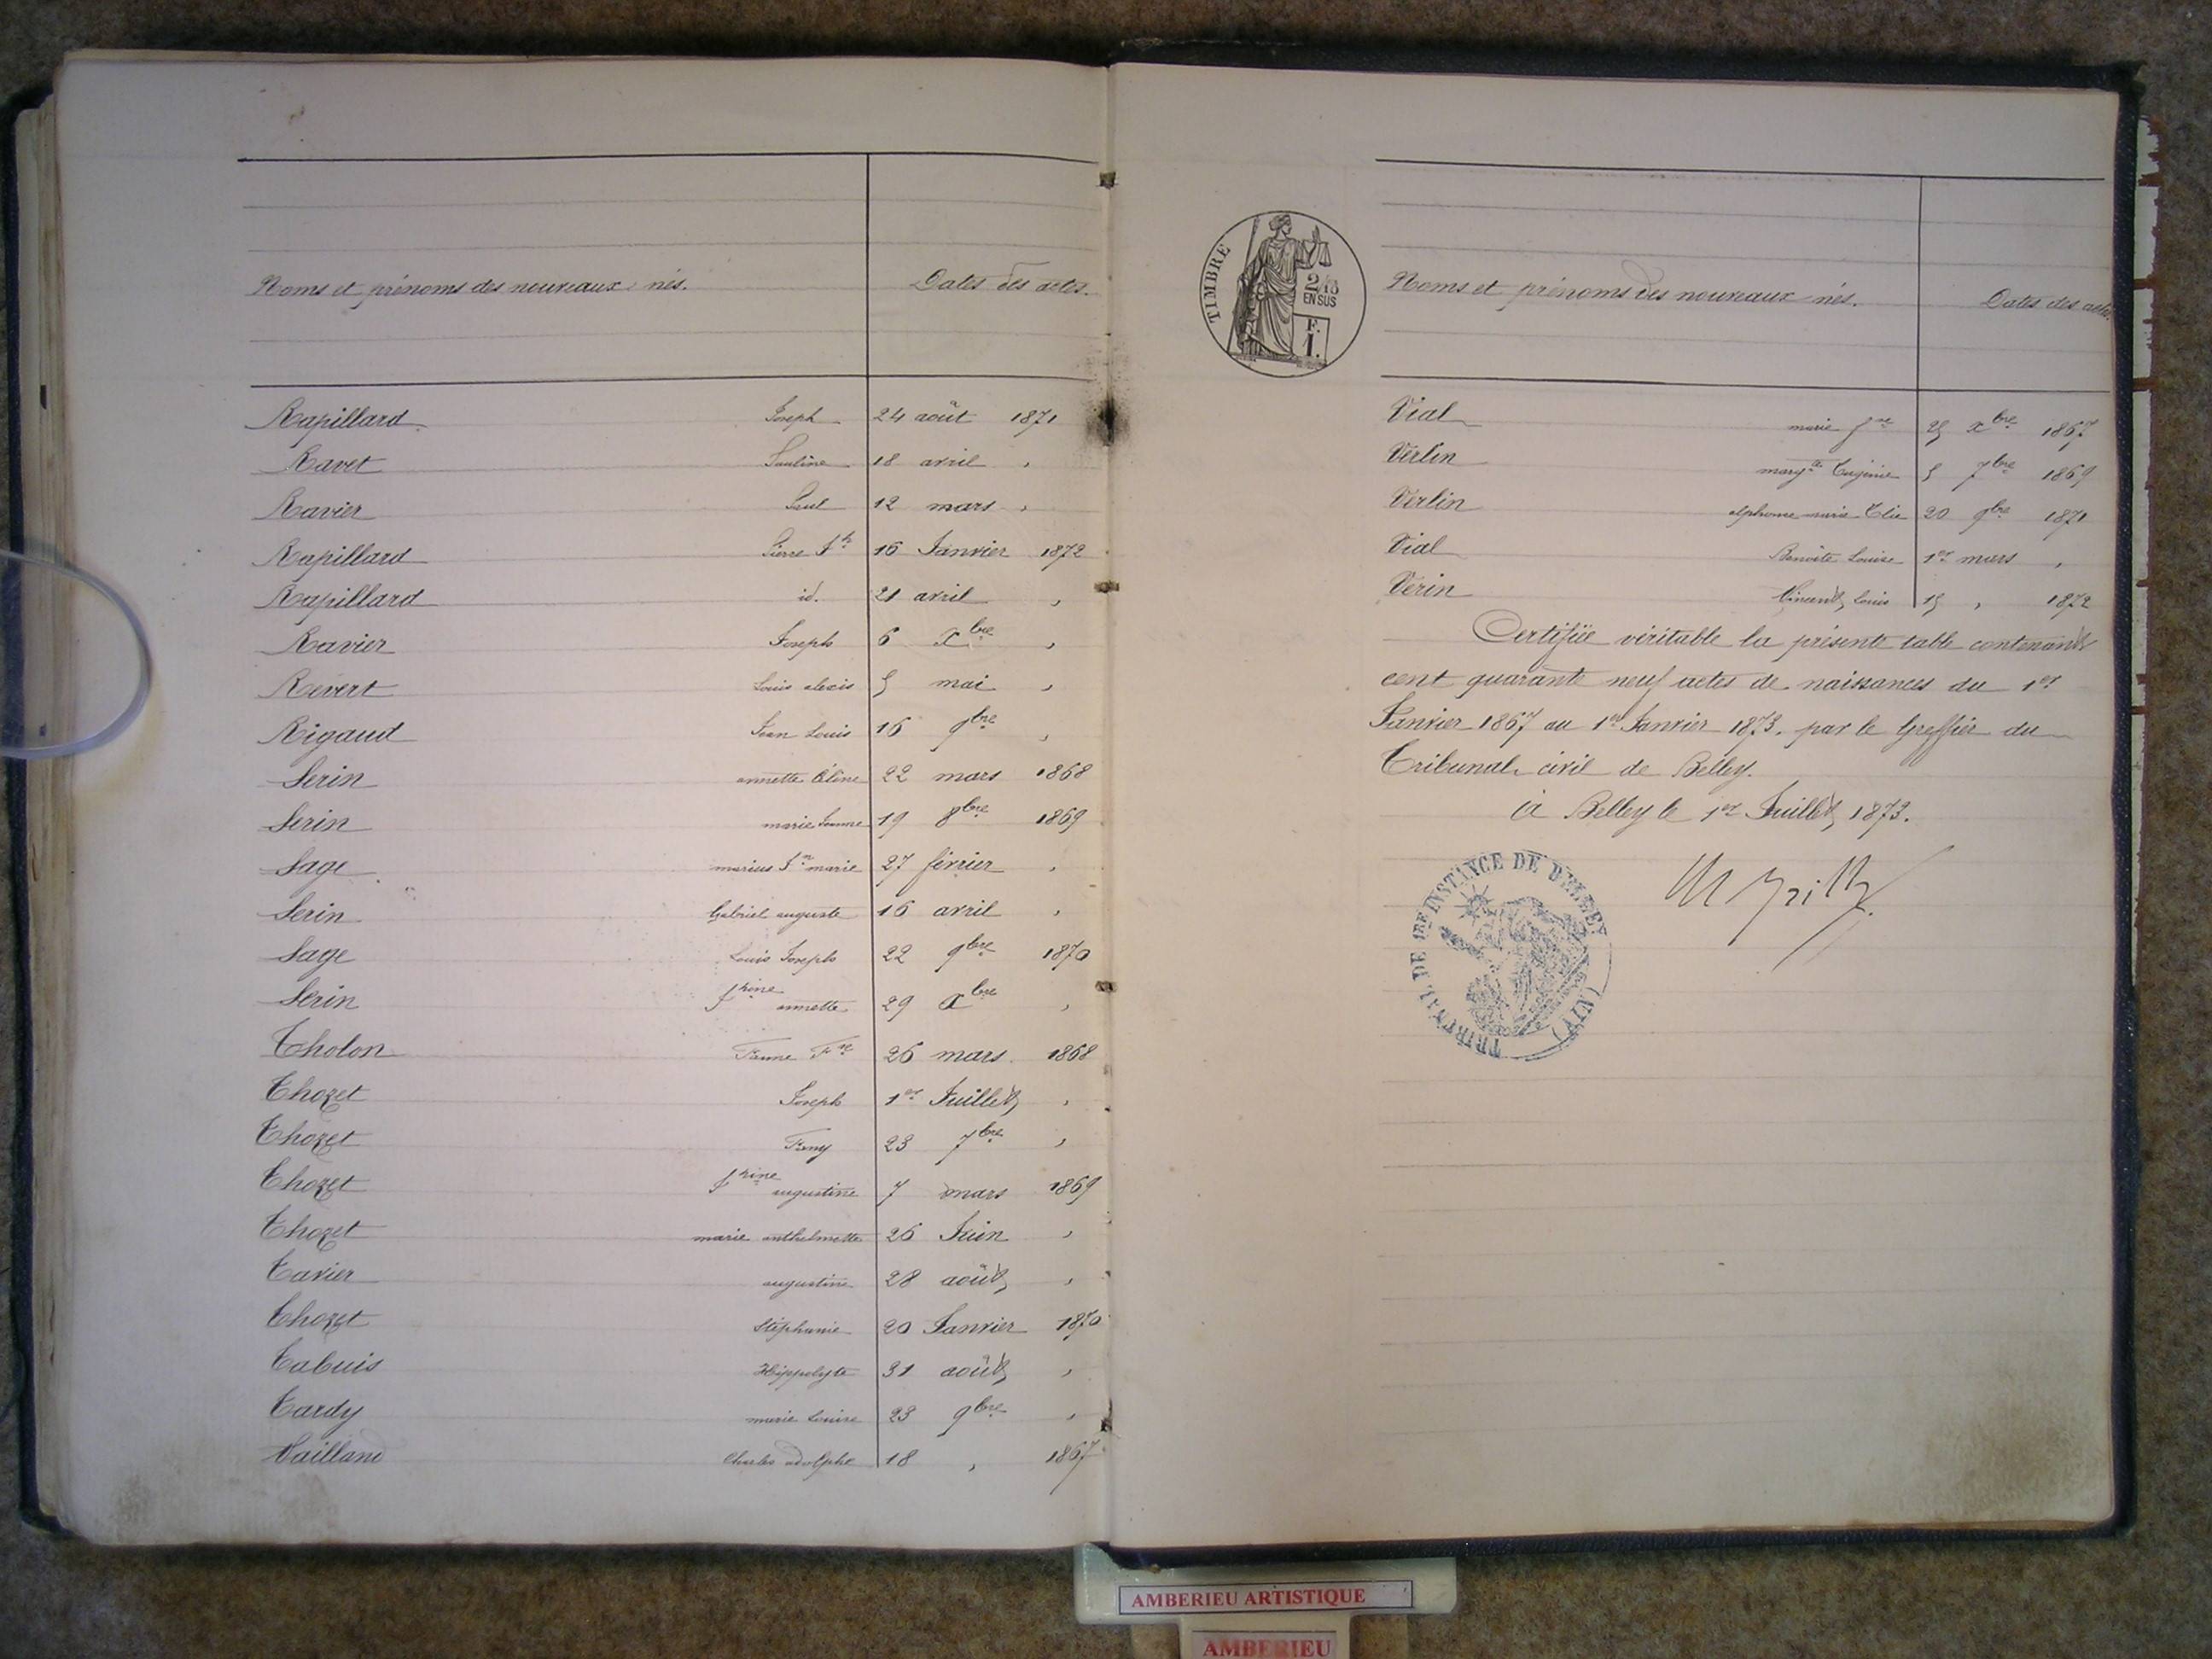 Noms et prénoms des nouveaux nés. Dates des actes.
Rapillard Joseph 24 août 1871
Ravet Pauline 18 avril "
Ravier Paul 12 mars "
Rapillard Pierre Jh 16 Janvier 1872
Rapillard id. 21 avril "
Ravier Joseph 6 Xbre "
Revert Louis alexis 5 mai "
Rigaud Jean Louis 16 9bre "
Serin annette Céline 22 mars 1868
Serin marie Jeanne 19 8bre 1869
Sage marius Jn marie 27 février "
Serin Gabriel auguste 16 avril "
Sage Louis Joseph 22 9bre 1870
Serin Jhine annette 29 Xbre "
Tholon Jeanne 26 mars 1868
Thozet Joseph 1er Juillet "
Thozet 23 7bre "
Thozet Jhine augustine 7 mars 1869
Thozet marie anthelmette 26 Juin "
Tavier augustine 28 août "
Thozet Stéphanie 20 Janvier 1870
Tabuis Hippolyte 31 août "
Tardy marie Louise 23 9bre "
Vailland Charles adolphe 18 " 1867
TIMBRE
2/10
EN SUS
F.
1.
Noms et prénoms des nouveaux nés. Dates des actes.
Vial marie 25 Xbre 1867
Verlin Eugénie 5 7bre 1869
Verlin alphonse marie Elie 20 9bre 1871
Vial Benoite Louise 1er mars "
Verin Vincent Louis 15 " 1872
Certifiée véritable la présente table contenant
cent quarante neuf actes de naissances du 1er
Janvier 1867 au 1er Janvier 1873. par le Greffier du
Tribunal civil de Belley.
à Belley le 1er Juillet 1873.
TRIBUNAL DE 1RE INSTANCE DE BELLEY
(AIN)
AMBERIEU ARTISTIQUE
AMBERIEU